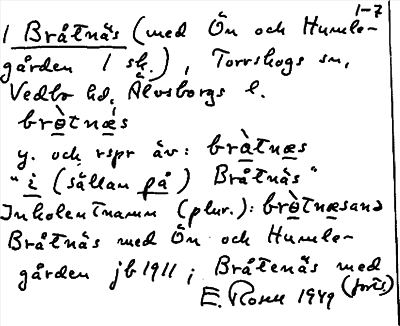 1-7
1 Bråtnäs (med Ön och Humle-
gården 1 sk.), Torrskogs sn,
Vedbo hd, Älvsborgs l.
brò̱tnǽ̱s
y. och rspr äv: brà̱tnæ̱s
"i (sällan på) Bråtnäs"
Inkolentnamn (plur.): brò̱tnæ̱sanə
Bråtnäs med Ön och Humle-
gården jb 1911; Bråtenäs med
(forts)
E. Rosell 1949